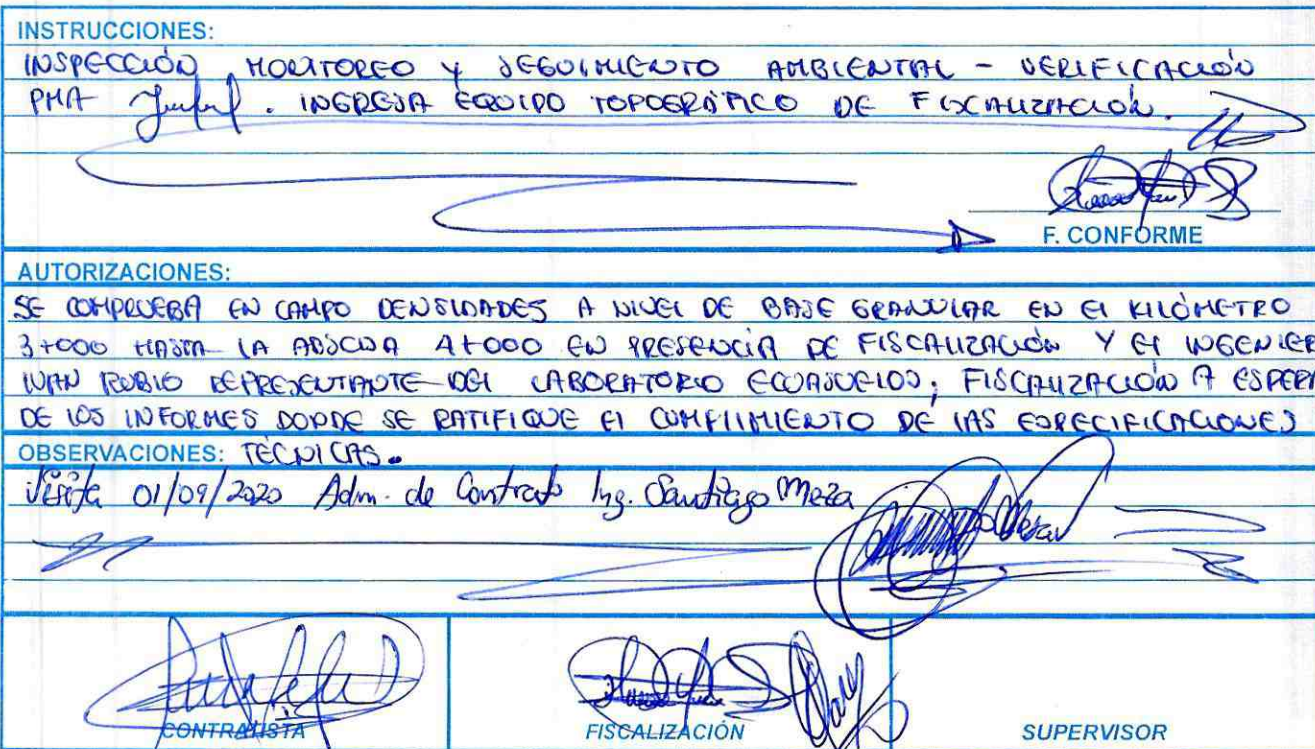 INSTRUCCIONES:
INSPECCIÓN MONITOREO Y SEGUIMIENTO AMBIENTAL - VERIFICACIÓN
PMA . INGRESA EQUIPO TOPOGRÁFICO DE FISCALIZACIÓN.
F. CONFORME
AUTORIZACIONES:
SE COMPRUEBA EN CAMPO DENSIDADES A NIVEL DE BASE GRANULAR EN El KILÓMETRO
3+000 HASTA LA ABSCISA 4+000 EN PRESENCIA DE FISCALIZACIÓN Y El INGENIER
IVAN RUBIO REPRESENTANTE DEl LABORATORIO ECUASUELOS; FISCALIZACIÓN A ESPERA
DE LOS INFORMES DONDE SE RATIFIQUE El CUMPLIMIENTO DE lAS ESPECIFICACIONES
OBSERVACIONES: TÉCNICAS.
Visita 01/09/2020 Adm. de Contrato Ing. Santiago Meza
CONTRATISTA
FISCALIZACIÓN
SUPERVISOR